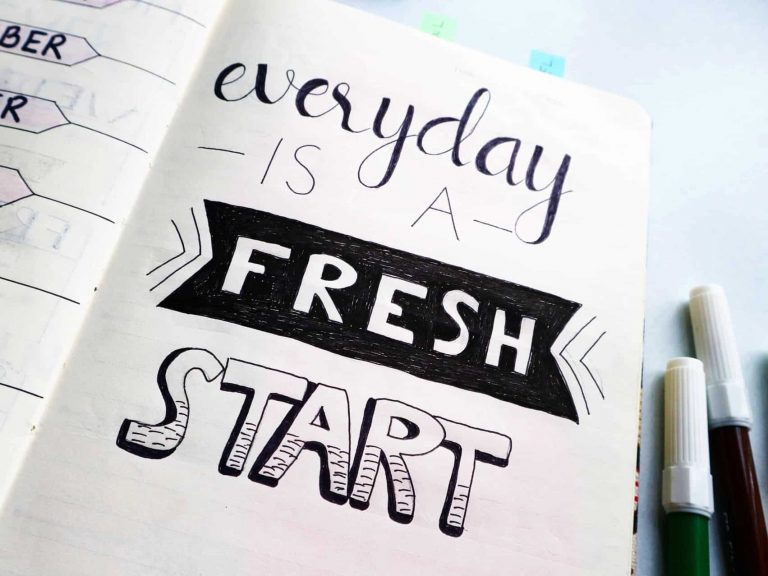 BER
R
everyday
IS A
FRESH
START